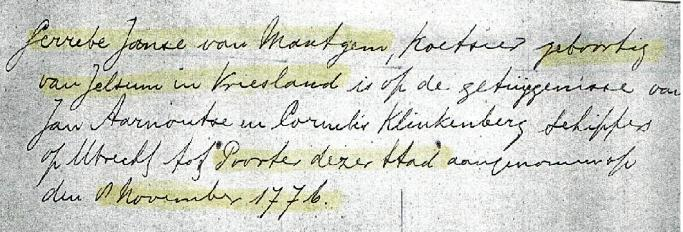 Gerrebe Janse van Mantgem, koetsier geboortig
van Jelsum in Vriesland is op de getuijgenisse van
Jan Aarnoutse en Cornelis Klinkenberg schippers
op Utrecht tot Poorter dezer stad aangenomen op
den 8 November 1776.